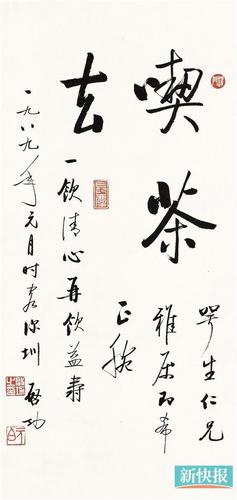 喫茶
去
咢生仁兄
雅属即希
正腕
一飲清心再飲益壽
一九八九年元月时客深圳 啟功
新快报